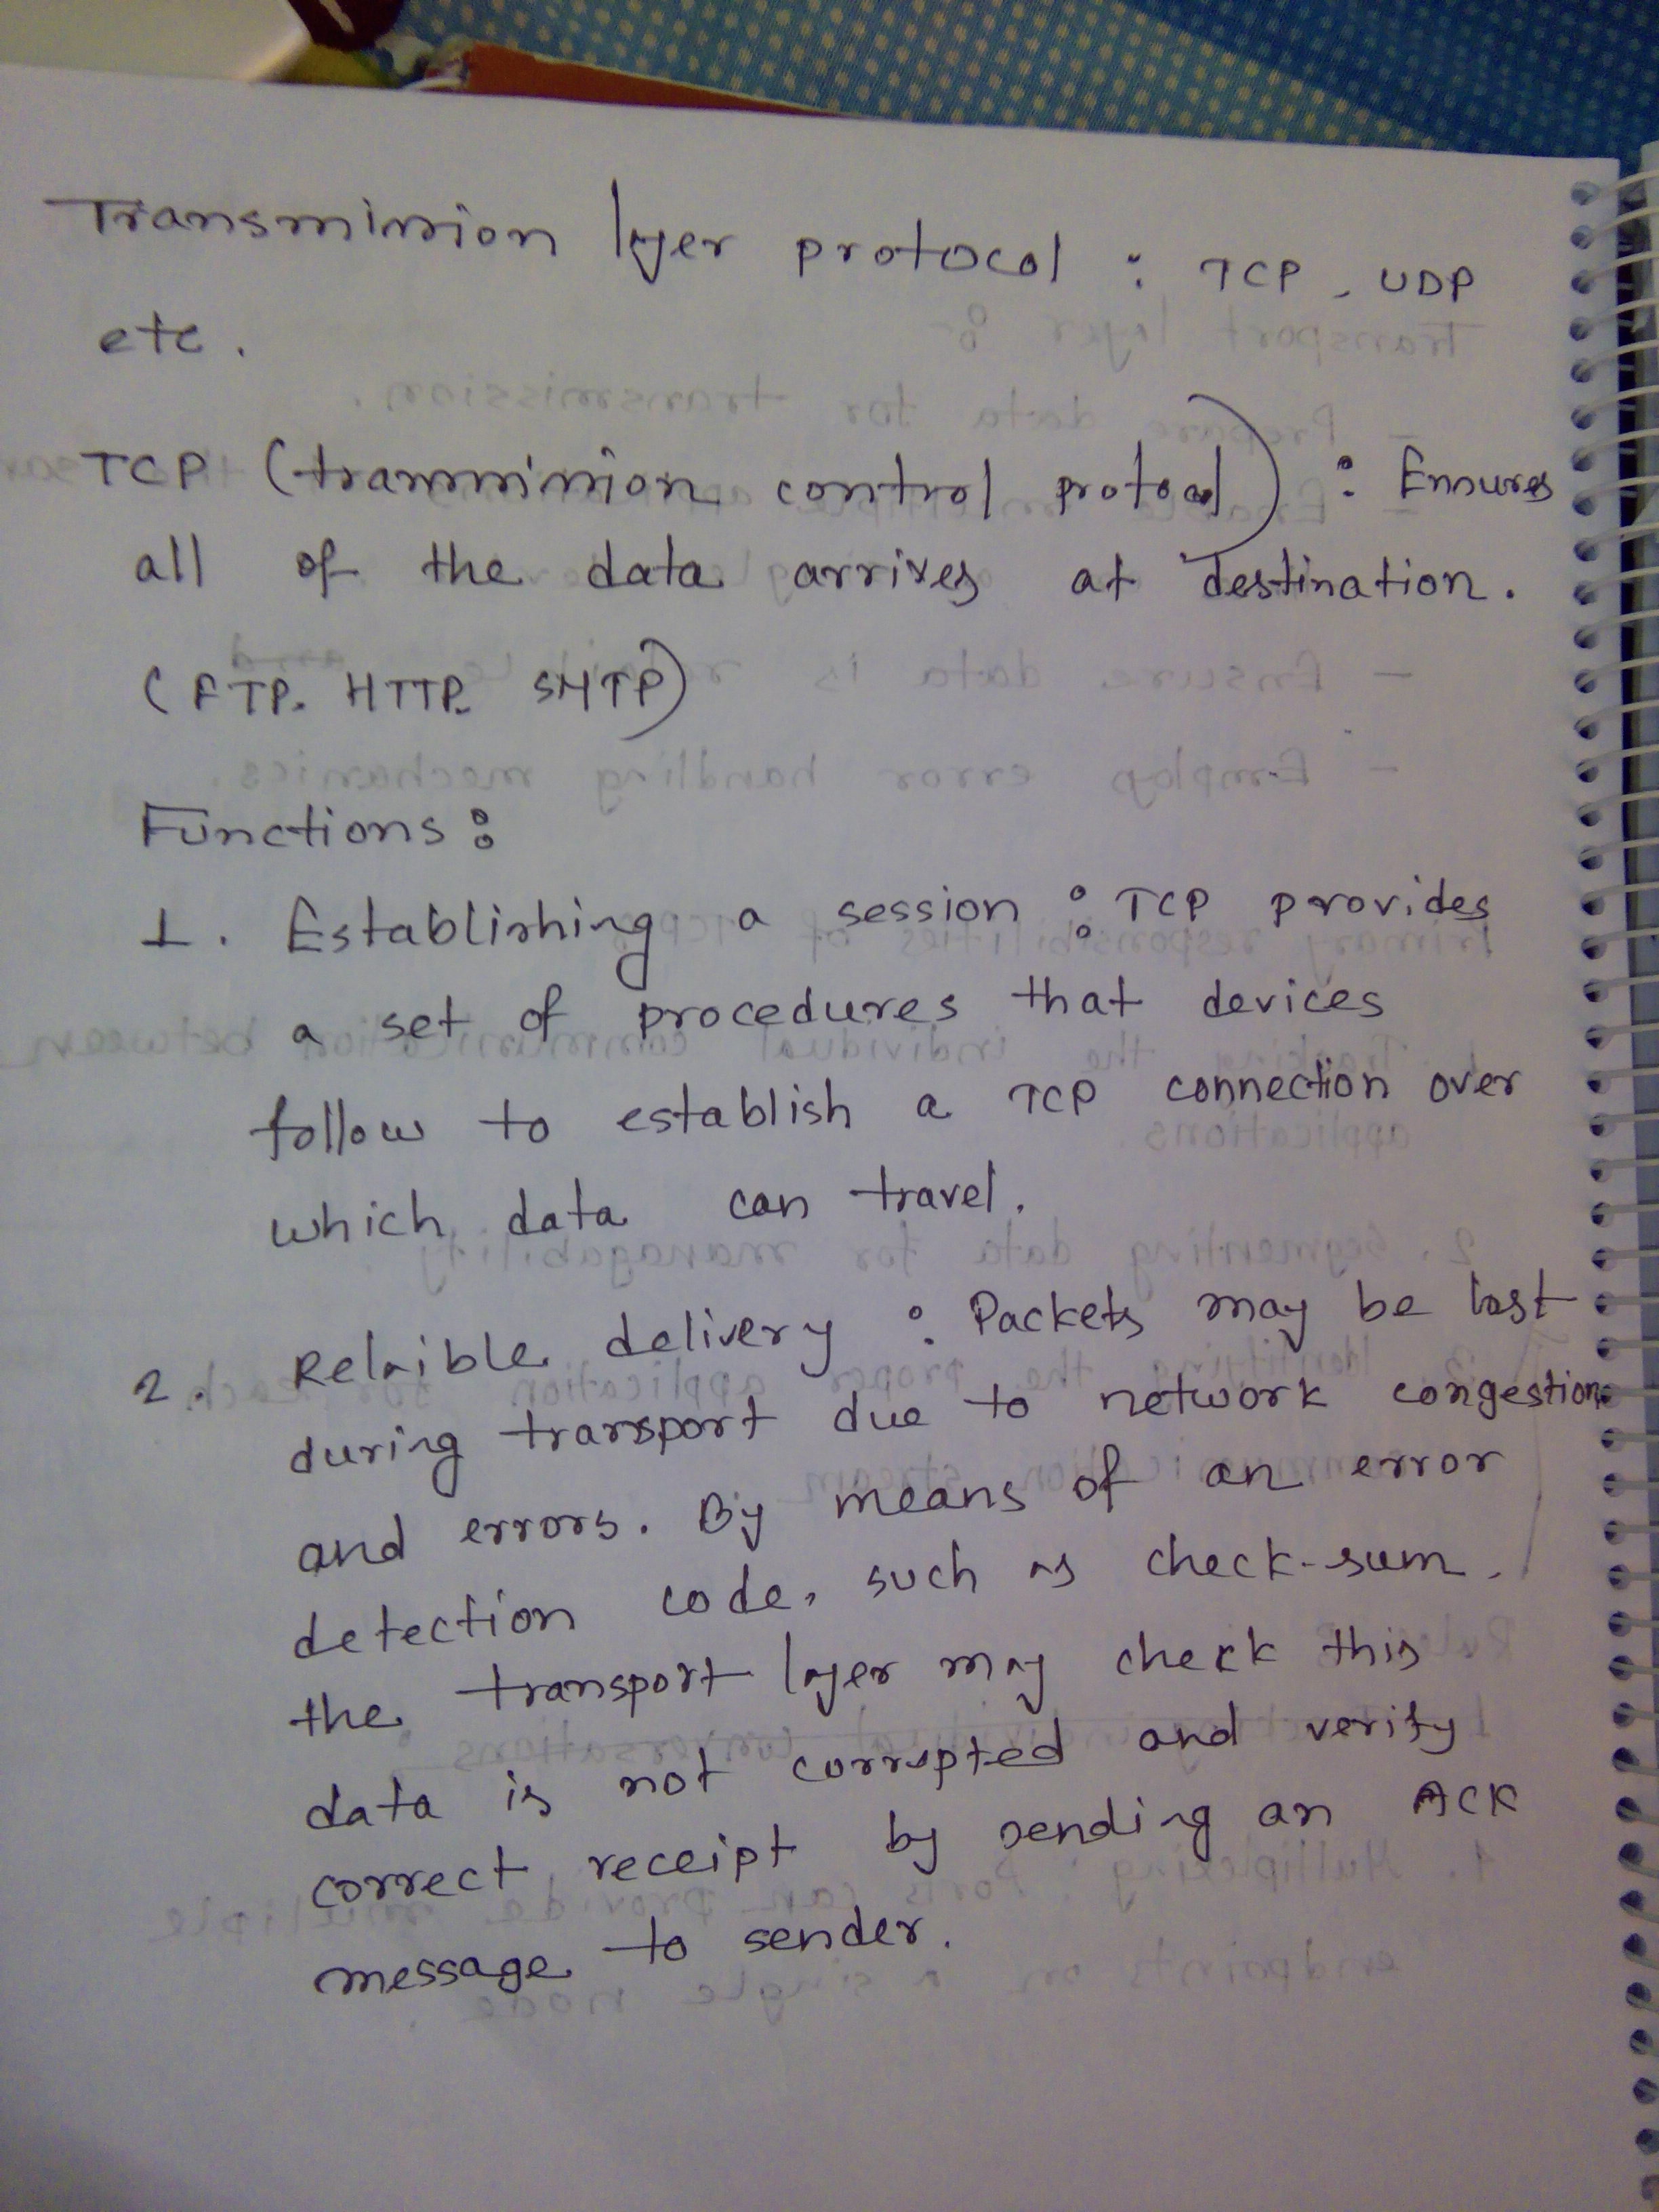 Transmission layer protocol : TCP, UDP
etc.
TCP (transmission control protocol) : Ensures
all of the data arrives at destination.
(FTP, HTTP, SMTP)
Functions :
1. Establishing a session : TCP provides
a set of procedures that devices
follow to establish a TCP connection over
which data can travel.
2. Relaible delivery : Packets may be lost
during transport due to network congestion
and errors. By means of an error
detection code, such as check-sum,
the transport layer may check this
data is not corrupted and verify
correct receipt by sending an ACK
message to sender.